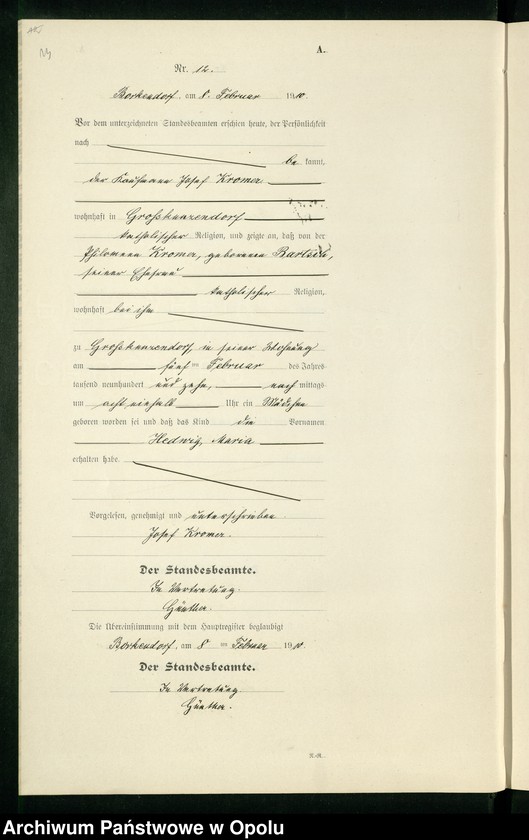 A.
Nr. 12.
Borkendorf, am 8. Februar 1910.
Vor dem unterzeichneten Standesbeamten erschien heute, der Persönlichkeit
nach
be kannt,
der Kaufmann Josef Kromer
wohnhaft in Großkunzendorf
katholischer Religion, und zeigte an, daß von der
Philomena Kromer, geborenen Bartsch,
seiner Ehefrau
katholischer Religion,
wohnhaft bei ihm
zu Großkunzendorf, in seiner Wohnung
am fünften Februar des Jahres
tausend neunhundert und zehn, nach mittags
um acht einhalb Uhr ein Mädchen
geboren worden sei und daß das Kind die Vornamen
Hedwig, Maria
erhalten habe.
Vorgelesen, genehmigt und unterschrieben
Josef Kromer.
Der Standesbeamte.
In Vertretung.
Die Übereinstimmung mit dem Hauptregister beglaubigt
Borkendorf, am 8 ten Februar 1910.
Der Standesbeamte.
In Vertretung.
Archiwum Państwowe w Opolu